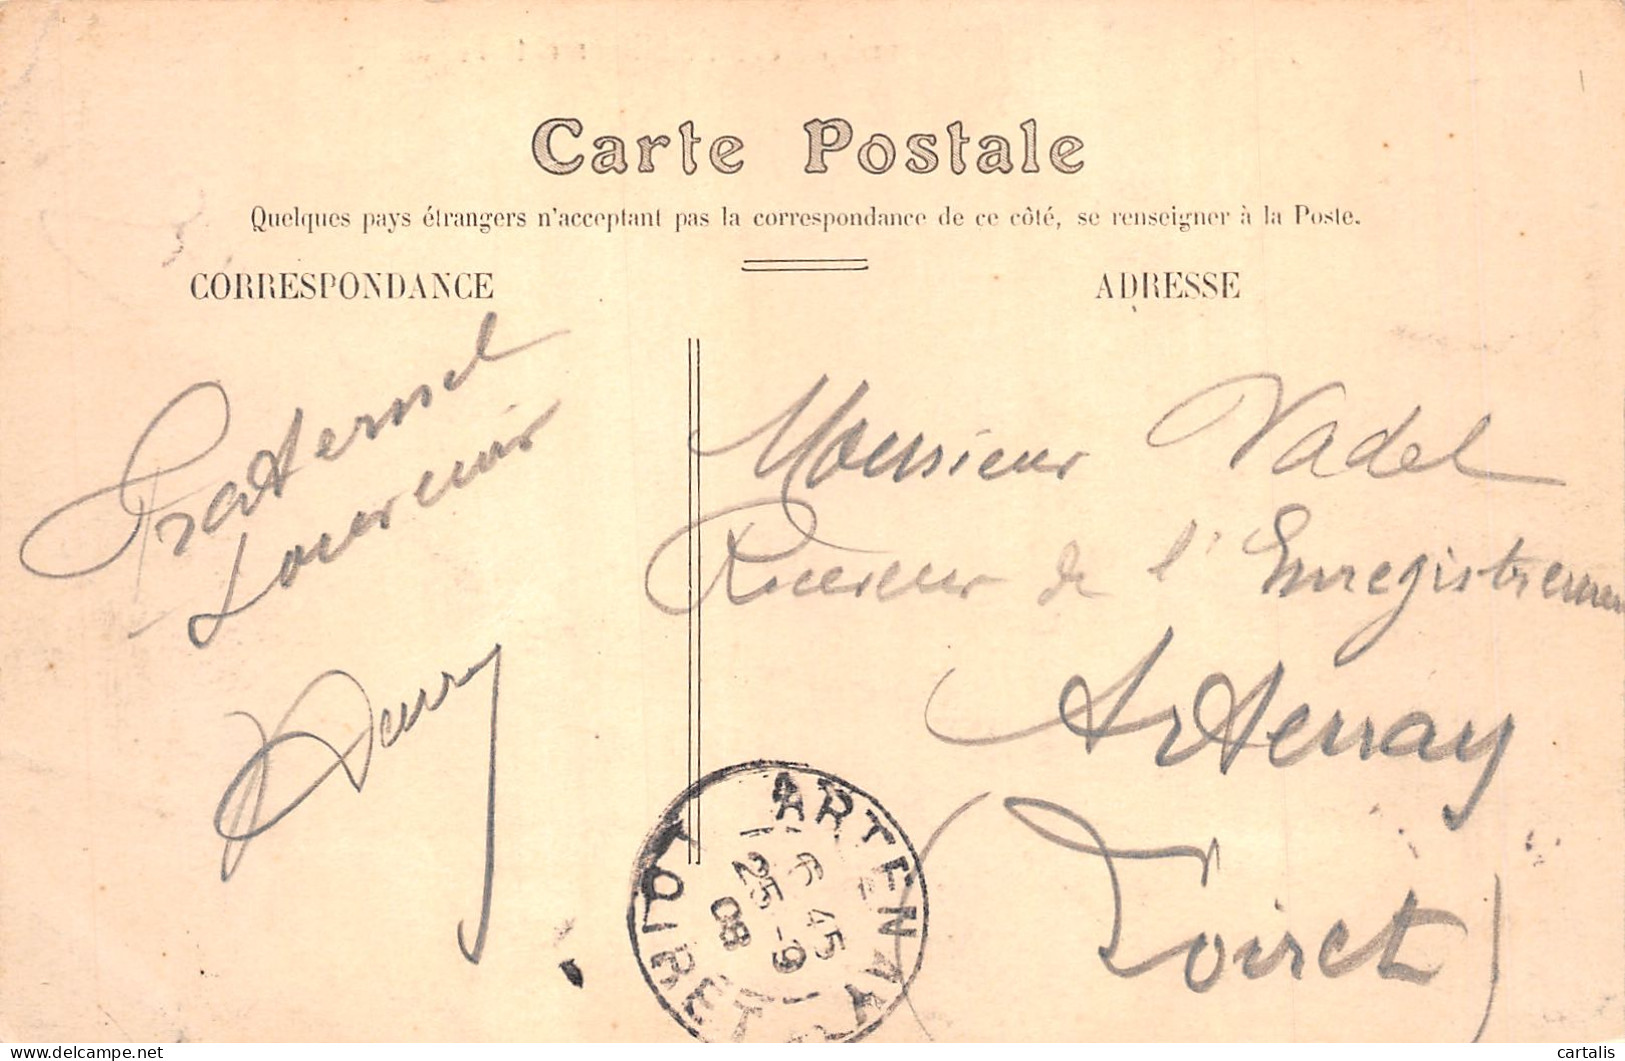 Carte Postale
Quelques pays étrangers n'acceptant pas la correspondance de ce côté, se renseigner à la Poste.
CORRESPONDANCE
ADRESSE
Fraternel
Souvenir
Henry
Monsieur Vadel
Receveur de l'Enregistremen
Artenay
(Loiret)
ARTENAY
6 45
25 -9
08
LOIRET
cartalis